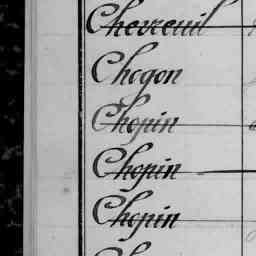 Chevreuil
Chogon
Chopin
Chopin
Chopin